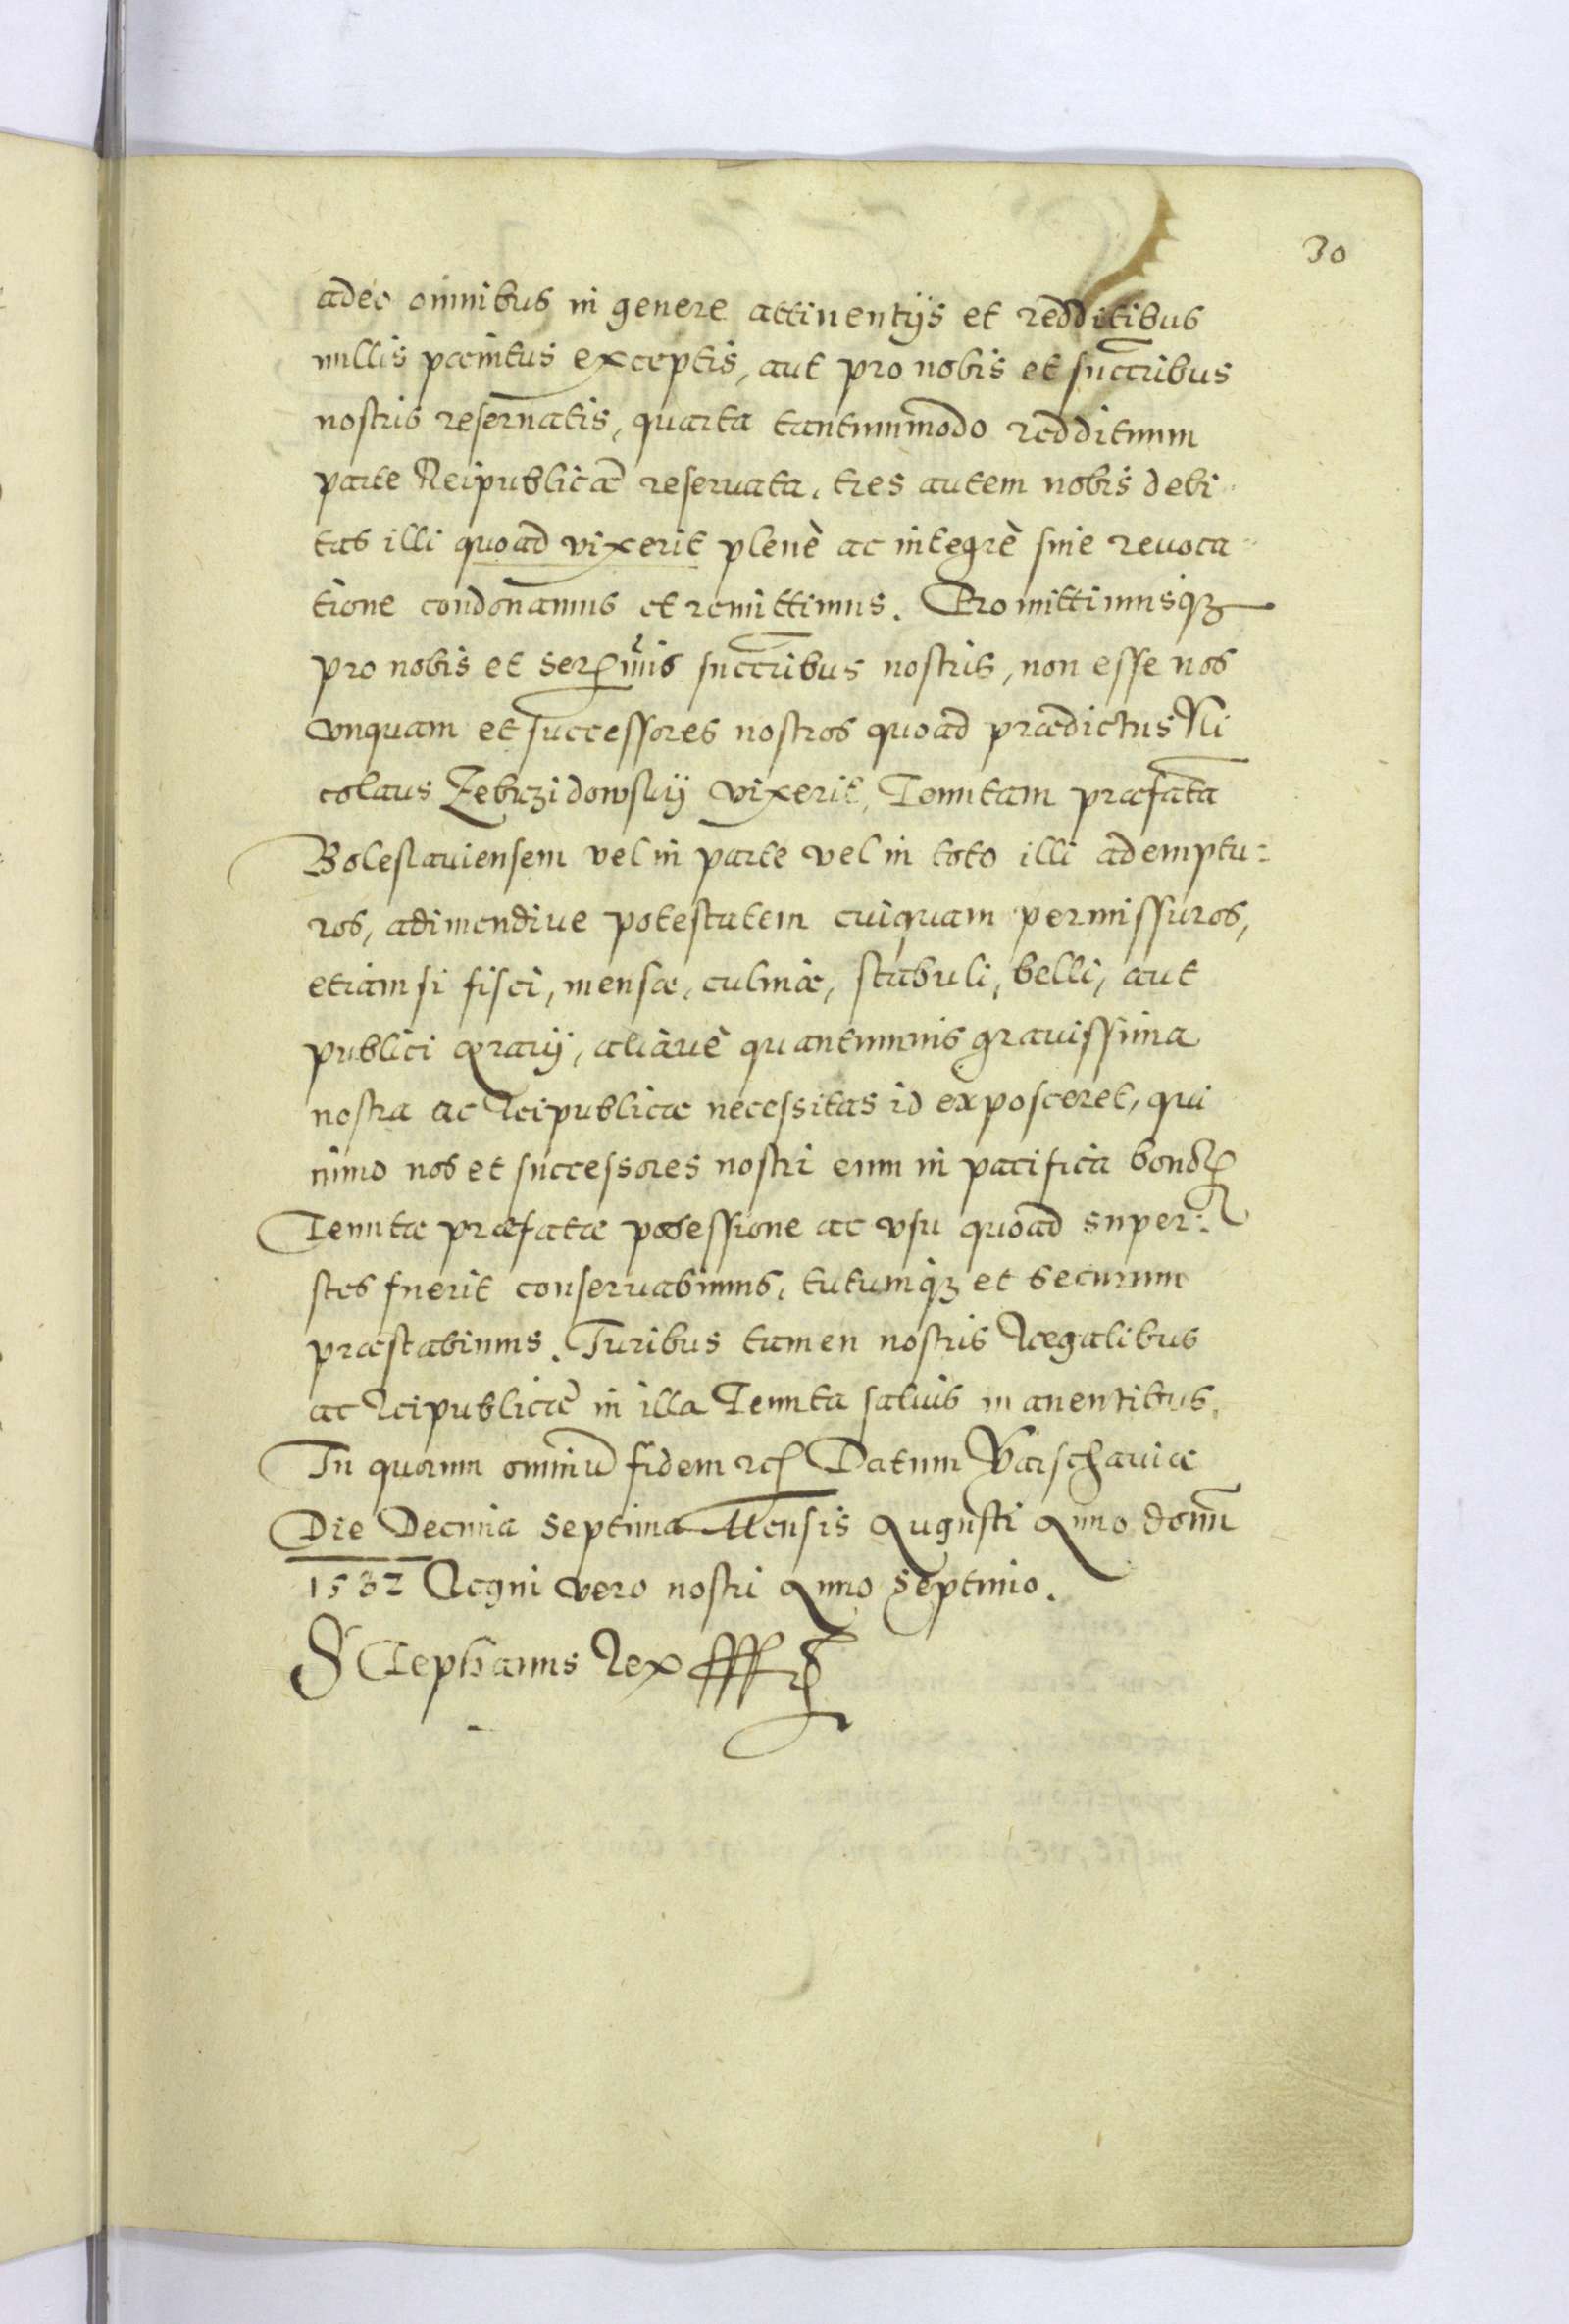 30
adeo omnibus in genere attinentÿs et redditibus
nullis pænitus exceptis, aut pro nobis et succribus
nostris reseruatis, quarta tantummodo reddituum
parte Reipublicæ reseruata, tres autem nobis debi
tas illi quoad vixerit plenè ac integrè sine reuoca
tione condonamus et remittimus. Promittimusq3
pro nobis et Ser mis succribus nostris, non esse nos
vnquam et successores nostros quoad prædictus Ni
colaus Zebrzidowskÿ vixerit, Tenutam præfata
Boleslauiensem vel in parte vel in toto illi ademptu:
ros, adimendiue potestatem cuiquam permissuros,
etiamsi fisci, mensæ, culinæ, stabuli, belli, aut
publici ærarÿ, aliàuè quantumuis grauissima
nostra ac Reipublicæ necessitas id exposceret, qui
nimo nos et successores nostri eum in pacifica bonor
Tenutæ præfatæ possessione ac vsu quoad super:
stes fuerit conseruabimus, tutumq3 et securum
præstabimus. Juribus tamen nostris Regalibus
ac Reipublicæ in illa Tenuta saluis manentibus.
In quorum omniu fidem rcs Datum Varschauiæ
Die Decima septima Mensis Augusti Anno domi
1582 Regni vero nostri Anno septimo.
Stephanus Rex